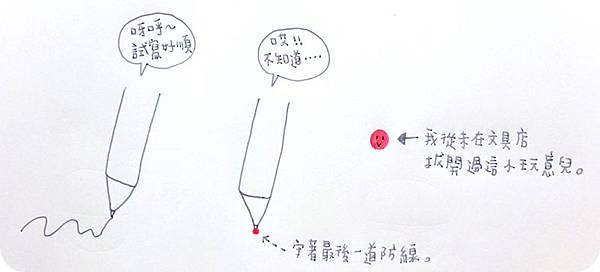 呀呼～
試寫好順
哎!!
不知道‥‥
我從未在文具店
拔開過這小玩意兒。
守著最後一道防線。